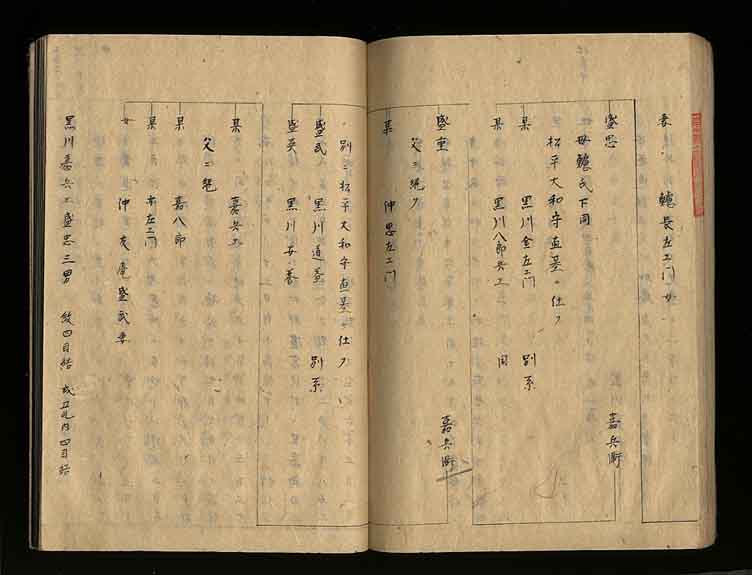 妻 鱸長左エ門女
盛忠 嘉兵衛
母鱸氏下同
松平大和守直基ニ仕フ
某 黒川金左エ門 別系
某 黒川八郎兵エ 同
盛重 嘉兵衛
父ニ継ク
某 仲忠左エ門
別ニ松平大和守直基ニ仕フ
盛武 黒川道益 別系
盛英 黒川安養
某 嘉兵エ
父ニ継
某 嘉八郎
某 市左エ門
女 仲友庵盛武妻
黒川嘉兵エ盛忠三男 紋四目結 或丸内四目結